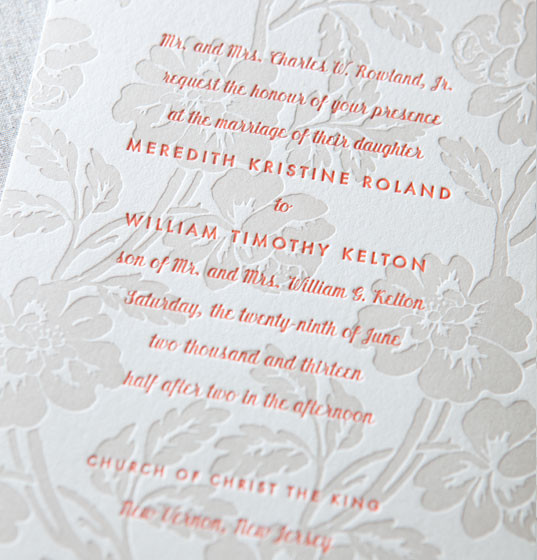 Mr. and Mrs. Charles W. Rowland, Jr.
request the honour of your presence
at the marriage of their daughter
MEREDITH KRISTINE ROLAND
to
WILLIAM TIMOTHY KELTON
son of Mr. and Mrs. William G. Kelton
Saturday, the twenty-ninth of June
two thousand and thirteen
half after two in the afternoon
CHURCH OF CHRIST THE KING
New Vernon, New Jersey